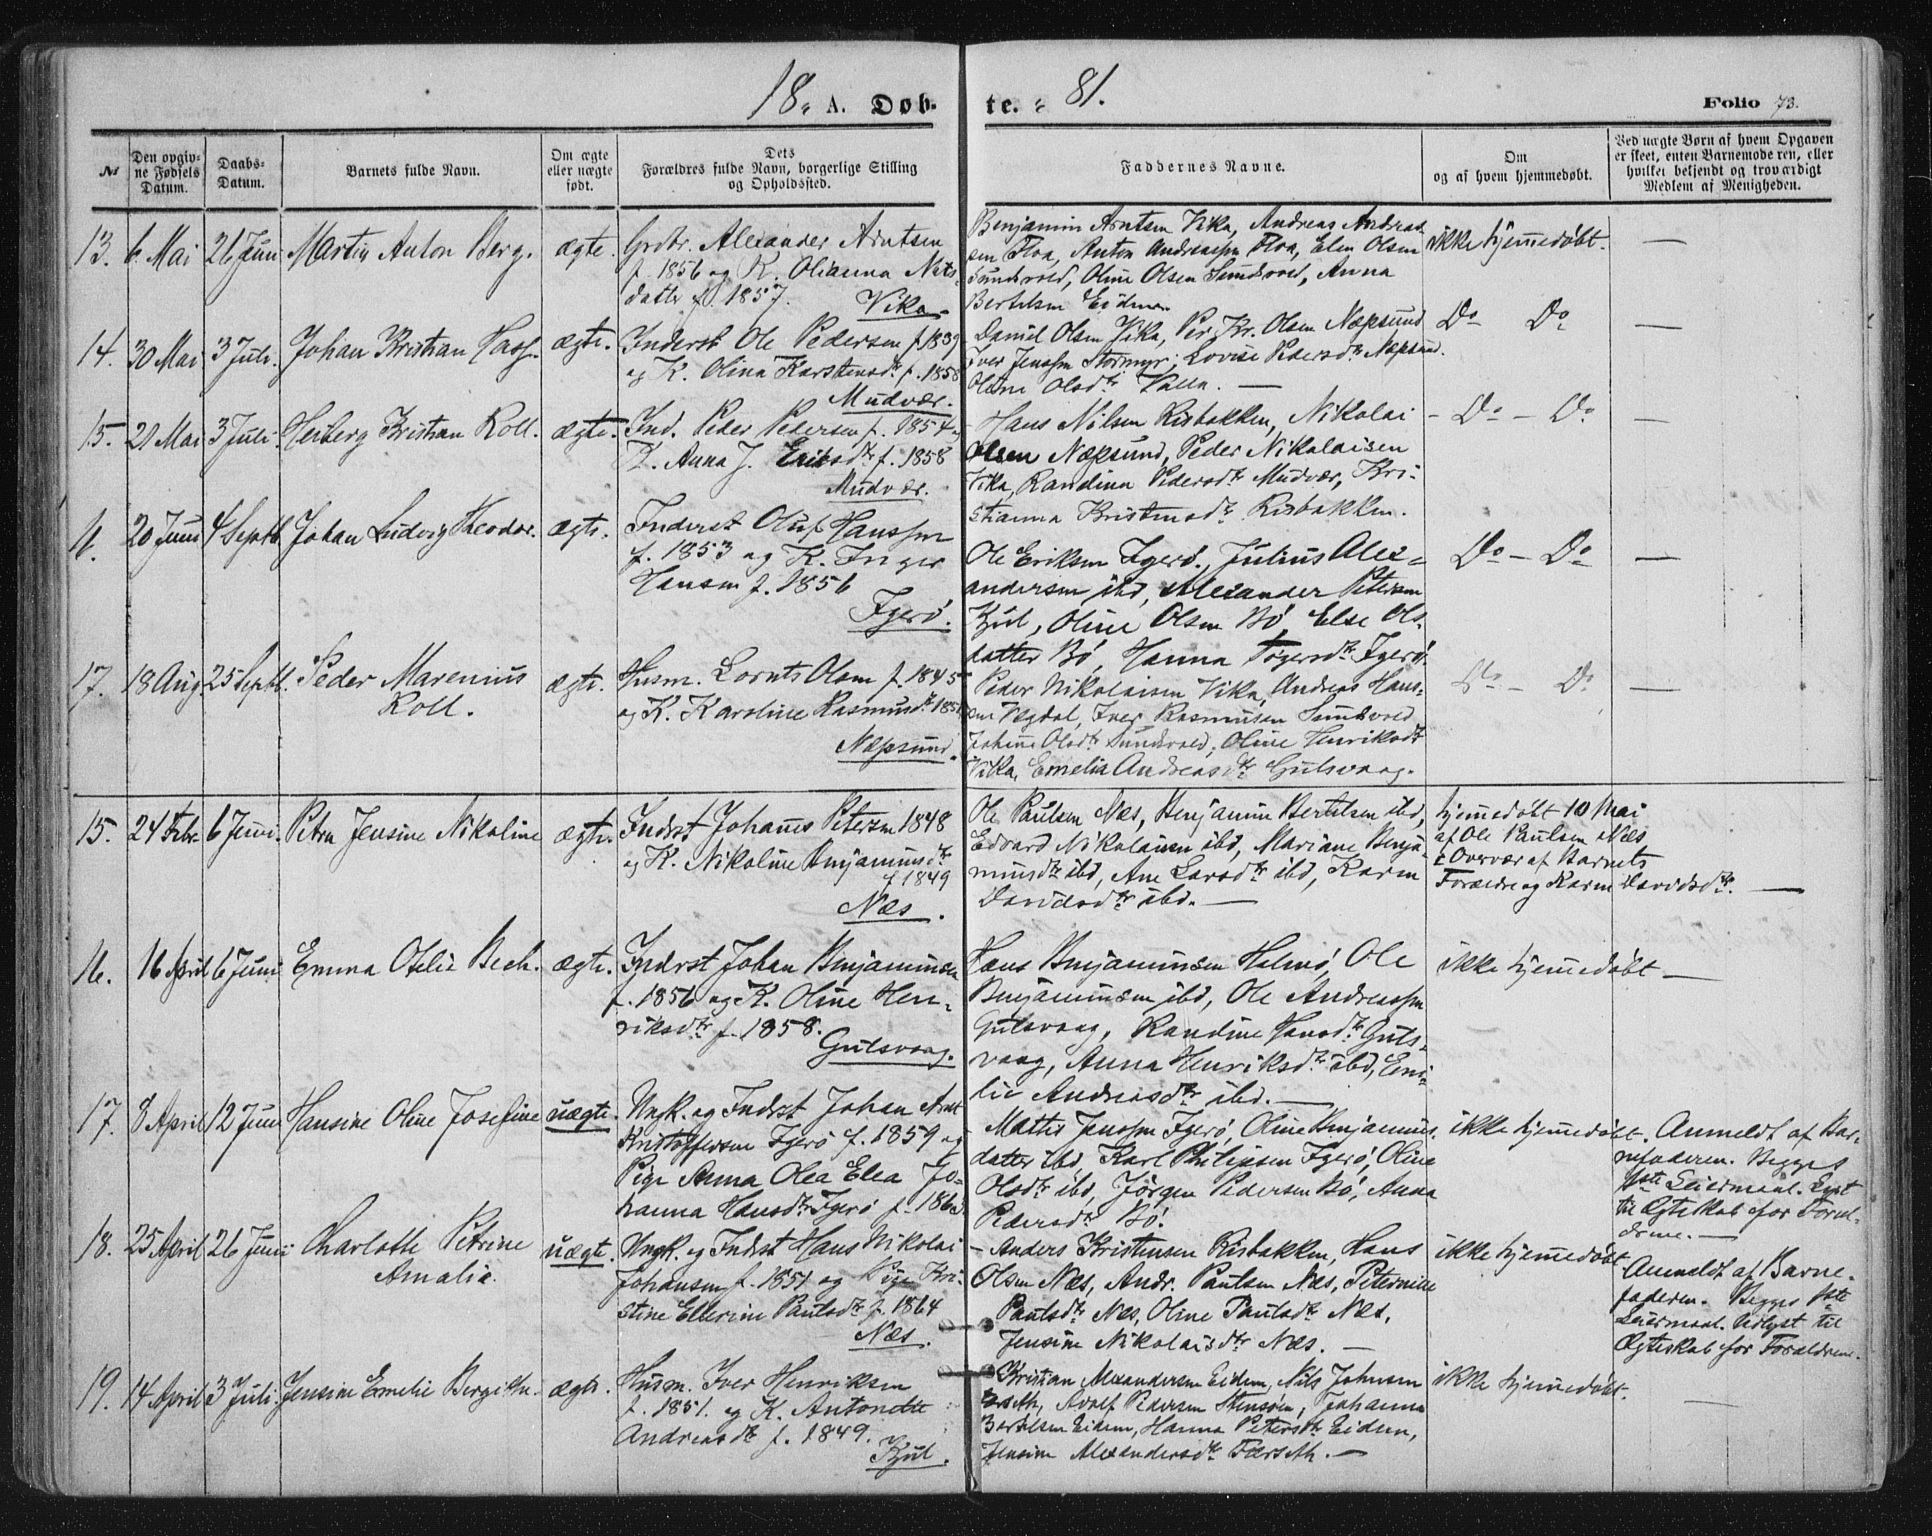 18 A. Døb-
te. 81.
Folio 73.
№
Den opgiv-
ne Fødsels
Datum.
Daabs-
Datum.
Barnets fulde Navn.
Om ægte
eller uægte
født.
Dets
Forældres fulde Navn, borgerlige Stilling
og Opholdssted.
Faddernes Navne.
Om
og af hvem hjemmedøbt.
Ved uægte Børn af hvem Opgaven
er skeet, enten Barnemoderen, eller
hvilket bekjendt og troværdigt
Medlem af Menigheden.
13. 6 Mai 26 Juni Martin Anton Berg. ægte.
Grdbr. Alexander Arntsen
f. 1856 og K. Olianna Nils-
datter f. 1857.
Vika.
Benjamin Arntsen Vika, Andreas Andrea-
sen Floa, Anton Andreassen Floa, Elen Olsen
Sundsvold, Oline Olsen Sundsvold, Anna
Bertelsen Eidem
ikke hjemmedøbt. —
14. 30 Mai 3 Juli. Johan Kristian Hass. ægte.
Inderst Ole Pedersen f. 1839
og K. Olina Karstensdtr f. 1858
Mudvær.
Daniel Olsen Vika, Per Kr. Olsen Næpsund
Iver Jenssen Stormyr, Lovise Pedersdtr Næpsund.
Oline Olsdtr Valla. —
Do Do —
15. 21 Mai 3 Juli Heiberg Kristian Roll. ægte.
Ind. Peder Pedersen f. 1854 og
K. Anna J. Eriksdtr f. 1858
Mudvær.
Hans Nilsen Risbakken, Nikolai
Olsen Næpsund, Peder Nikolaisen
Vika, Randina Pedersdtr Mudvær, Kri-
stianna Kristensdtr Risbakken.
- Do - Do —
16. 20 Juni 4 Septb. Johan Ludvig Theodor. ægte.
Inderst Oluf Hanssen
f. 1853 og K. Inger
Hansen f. 1856
Igerø.
Ole Eriksen Igerø, Julius Alex-
andersen ibd, Alexander Petersen
Kjul, Oline Olsen Bø, Else Ols-
datter Bø, Hanna Tøgersdtr Igerø
Do - Do —
17. 18 Aug 25 Septb. Peder Marenius
Roll. ægte.
Husm. Lornts Olsen f. 1845
og K. Karoline Rasmusdtr 1851
Næpsund.
Peder Nikolaisen Vika, Andreas Hans-
sen Vegdal, Iver Rasmusen Sundsvold
Olsdtr Sundsvold, Oline Henriksdtr
Vika, Emelia Andreasdtr Gulsvaag.
Do - Do —
15. 24 Febr. 6 Juni. Petra Jensine Nikoline ægte.
Indrst Johannes Petersen 1848
og K. Nikoline Benjaminsdtr
f 1849
Næs.
Ole Paulsen Næs, Benjamin Bertelsen ibd,
Edvard Nikolaisen ibd, Mariane Benja-
minsdtr ibd, Ane Larsdtr ibd, Karen
Davidsdtr ibd. —
hjemmedøbt 10 Mai
af Ole Paulsen Næs
i Overvær af Barnets
Forældre og Karen Davidsdtr. —
16. 16 April 6 Juni Emma Ofelie Bech. ægte.
Indrst Johan Benjaminsen
f. 1856 og K. Oline Hen-
riksdtr f. 1858.
Gulsvaag.
Hans Benjaminsen Holmø, Ole
Benjaminsen ibd, Ole Andreassen
Gulsvaag, Randine Hansdtr Guls-
vaag, Anna Henriksdtr ibd, Emi-
lie Andreasdtr ibd. —
ikke hjemmedøbt —
17. 3 April 12 Juni Hansine Oline Josefine uægte.
Ungk. og Indrst Johan Arnt
Kristoffersen Igerø f. 1859 og
Pige Anna Olea Elea Jo-
hanna Hansdtr Igerø f. 1860.
Mattis Jenssen Igerø, Oline Benjamins-
datter ibd, Karl Philipsen Igerø, Oline
Olsdtr ibd, Jørgen Pedersen Bø, Anna
Pedersdtr Bø.
ikke hjemmedøbt.
Anmeldt af Bar-
nefaderen. Begges
1ste Leiermaal. Lyst
til Ægteskab for Foræl-
drene. —
18. 25 April 26 Juni Charlotte Petrine
Amalia. uægte.
Ungk. og Indrst Hans Nikolai
Johansen f. 1851 og Pige Kri-
stine Ellerine Paulsdtr f. 1864
Næs.
- Anders Kristensen Risbakken, Hans
Olsen Næs, Andr. Paulsen Næs, Peternille
Paulsdtr Næs, Oline Paulsdtr Næs,
Jensine Nikolaisdtr Næs. —
ikke hjemmedøbt
Anmeldt af Barne-
faderen. Begges 1ste
Leiermaal. Udlyst til
Ægteskab for Forældrene.
19. 14 April 3 Juli. Jensine Emelie Bergitte. ægte.
Husm. Iver Henriksen
f. 1851. og K. Antonette
Andreasdtr f. 1849.
Kjul.
Kristian Alexandersen Eidem, Nils Johnsen
Adolf Pedersen Stensøen, Johanna
Bertelsen Eidem, Hanna Petersdtr Eidem,
Jensine Alexandersdtr Færseth. —
ikke hjemmedøbt. —